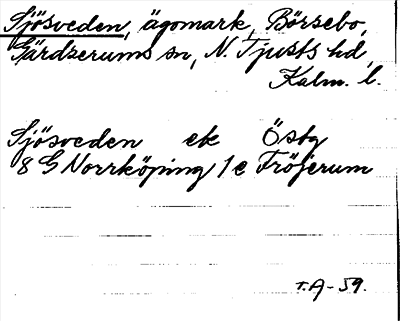 Sjösveden, ägomark, Börsebo,
Gärdserums sn, N. Tjusts hd,
Kalm. l.
Sjösveden ek Östg
8 G Norrköping 1 e Fröjerum
T.A-59.